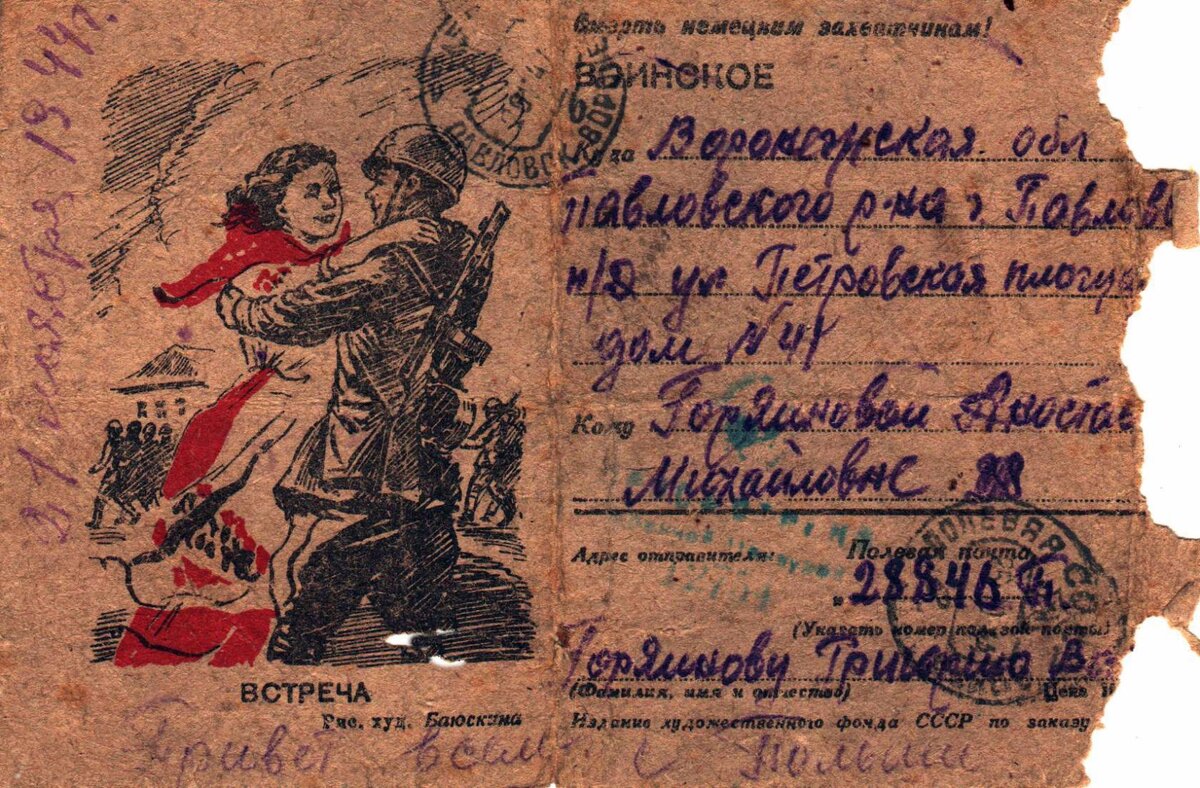 Смерть немецким захватчикам!
ВОИНСКОЕ
Куда Воронежская обл
Павловского р-на г. Павловс
п/о ул Петровская площа
дом №41
Кому Горяиновой Анастас
Михайловне
Адрес отправителя: Полевая почта
28846
(Указать номер полевой почты)
Горяинову Григорию Ва
(Фамилия, имя и отчество) Цена
Издание художественного фонда СССР по заказу
ВСТРЕЧА
Рис. худ. Баюскина
Привет всем с Польши
1944г.
ПАВЛОВСК ВОРОНЕ
ПОЛЕВАЯ